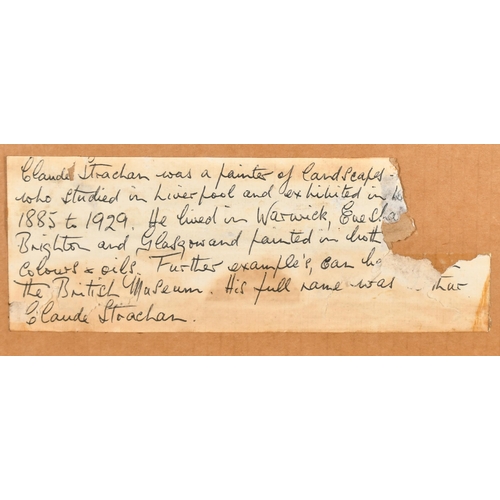 Claude Strachan was a painter of landscapes -
who studied in Liverpool and exhibited in
1885 to 1929. He lived in Warwick, Evesha
Brighton and Glasgow and painted in both
colours & oils. Further example's, can be
the British Museum. His full name was thur
Claude Strachan.